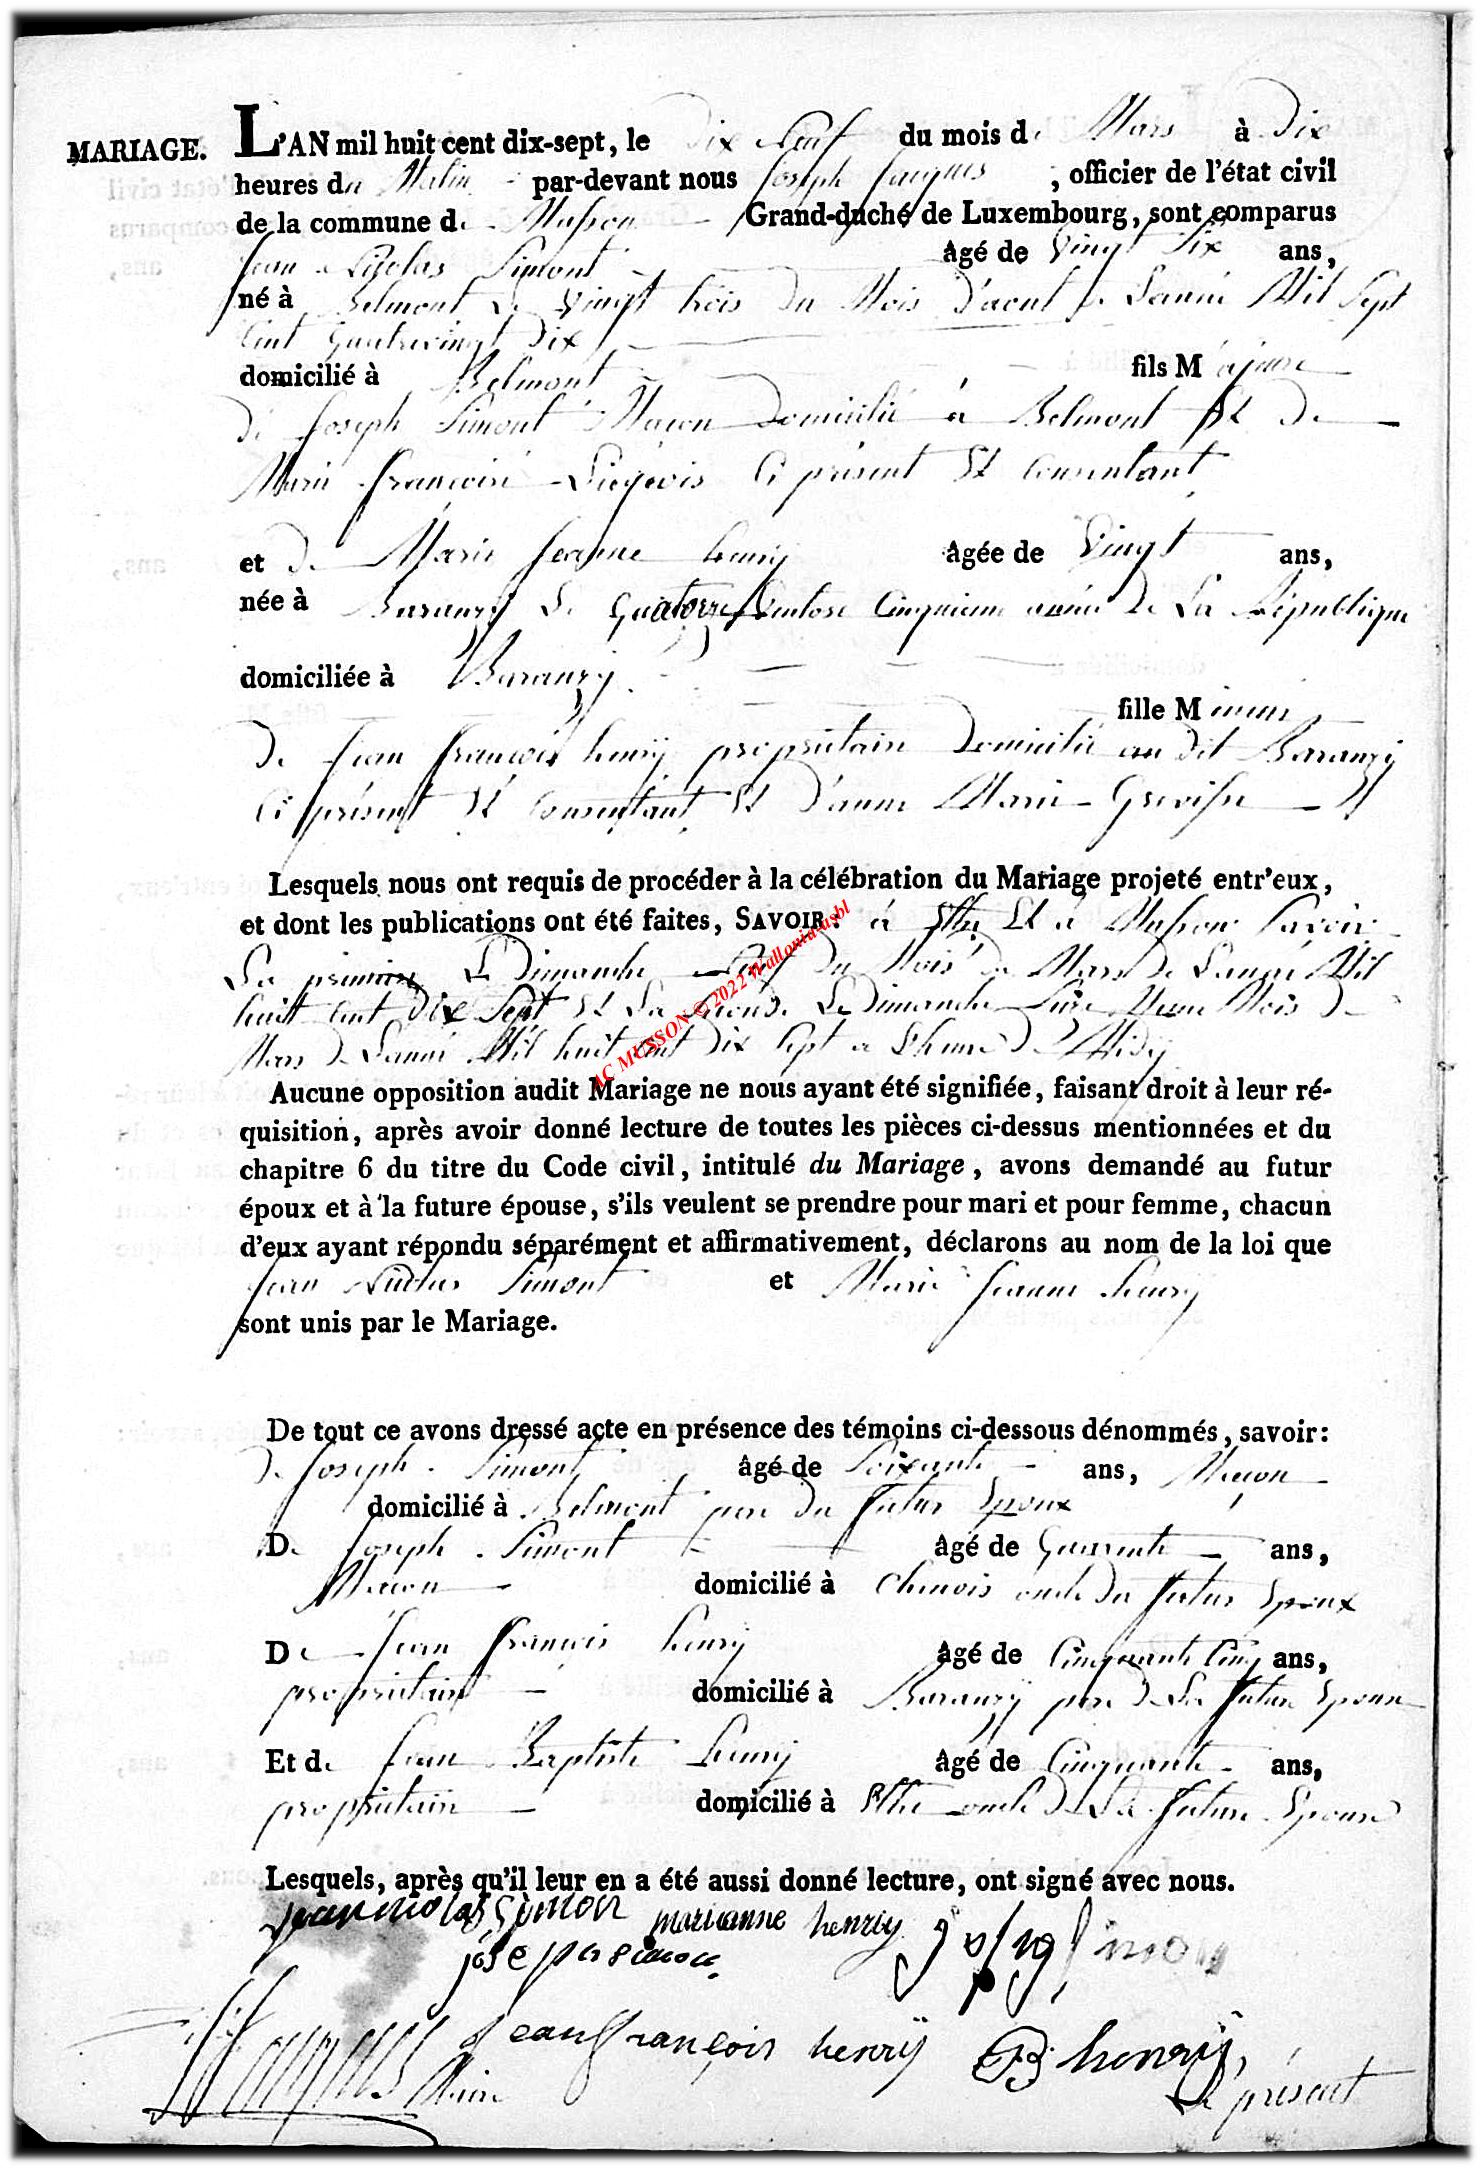 MARIAGE. L'AN mil huit cent dix-sept, le dix neuf du mois de Mars à dix
heures du Matin par-devant nous Joseph Jacques, officier de l'état civil
de la commune de Musson Grand-duché de Luxembourg, sont comparus
Jean Nicolas Simont âgé de vingt six ans,
né à Belmont Le vingt trois du Mois d'aout de L'anné Mil Sept
Cent Quatrevingt Dix
domicilié à Belmont fils Majeure
de Joseph Simont Maçon Domicilié à Belmont Et De
Marie françoise Liegeois Ci présent Et Consentant
et de Marie Jeanne henry âgée de Vingt ans,
née à Baranzy Le Quatorze Ventose Cinquieme année De La République
domiciliée à Baranzy
fille Mineur
De Jean françois henry propriétaire Domicilié au dit Baranzy
Ci présent Et Consentant Et D'anne Marie Grevisse
Lesquels nous ont requis de procéder à la célébration du Mariage projeté entr'eux,
et dont les publications ont été faites, SAVOIR: à Ethe Et à Musson Savoir
La premiere Le Dimanche du Mois de Mars De L'anné Mil
huit Cent Dix Sept Et La Seconde Le Dimanche Seize Meme Mois De
Mars De L'anné Mil huit Cent Dix Sept a L'heure De Midy
AC MUSSON © 2022 Wallonia asbl
Aucune opposition audit Mariage ne nous ayant été signifiée, faisant droit à leur ré-
quisition, après avoir donné lecture de toutes les pièces ci-dessus mentionnées et du
chapitre 6 du titre du Code civil, intitulé du Mariage, avons demandé au futur
époux et à la future épouse, s'ils veulent se prendre pour mari et pour femme, chacun
d'eux ayant répondu séparément et affirmativement, déclarons au nom de la loi que
Jean Nicolas Simont et Marie Jeanne henry
sont unis par le Mariage.
De tout ce avons dressé acte en présence des témoins ci-dessous dénommés, savoir:
De Joseph Simont âgé de Soixante ans, Maçon
domicilié à Belmont pere du futur Epoux
De Joseph Simont âgé de Quarente ans,
Macon domicilié à Chenois oncle du futur Epoux
De Jean françois henry âgé de Cinquante Cinq ans,
propriétaire domicilié à Baranzy pere De La future Epouse
Et de Jean Baptiste henry âgé de Cinquante ans,
propriétaire domicilié à Ethe oncle De La future Epouse
Lesquels, après qu'il leur en a été aussi donné lecture, ont signé avec nous.
jean nicolas Simon marianne henry
joseph simon
Jacques Maire jean françois henry JB henry
présent